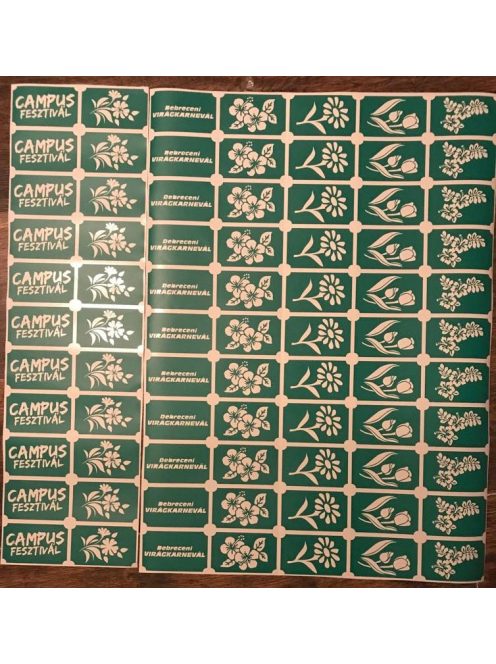 CAMPUS
FESZTIVÁL
Debreceni
VIRÁGKARNEVÁL
CAMPUS
FESZTIVÁL
Debreceni
VIRÁGKARNEVÁL
CAMPUS
FESZTIVÁL
Debreceni
VIRÁGKARNEVÁL
CAMPUS
FESZTIVÁL
Debreceni
VIRÁGKARNEVÁL
CAMPUS
FESZTIVÁL
Debreceni
VIRÁGKARNEVÁL
CAMPUS
FESZTIVÁL
Debreceni
VIRÁGKARNEVÁL
CAMPUS
FESZTIVÁL
Debreceni
VIRÁGKARNEVÁL
CAMPUS
FESZTIVÁL
Debreceni
VIRÁGKARNEVÁL
CAMPUS
FESZTIVÁL
Debreceni
VIRÁGKARNEVÁL
CAMPUS
FESZTIVÁL
Debreceni
VIRÁGKARNEVÁL
CAMPUS
FESZTIVÁL
Debreceni
VIRÁGKARNEVÁL